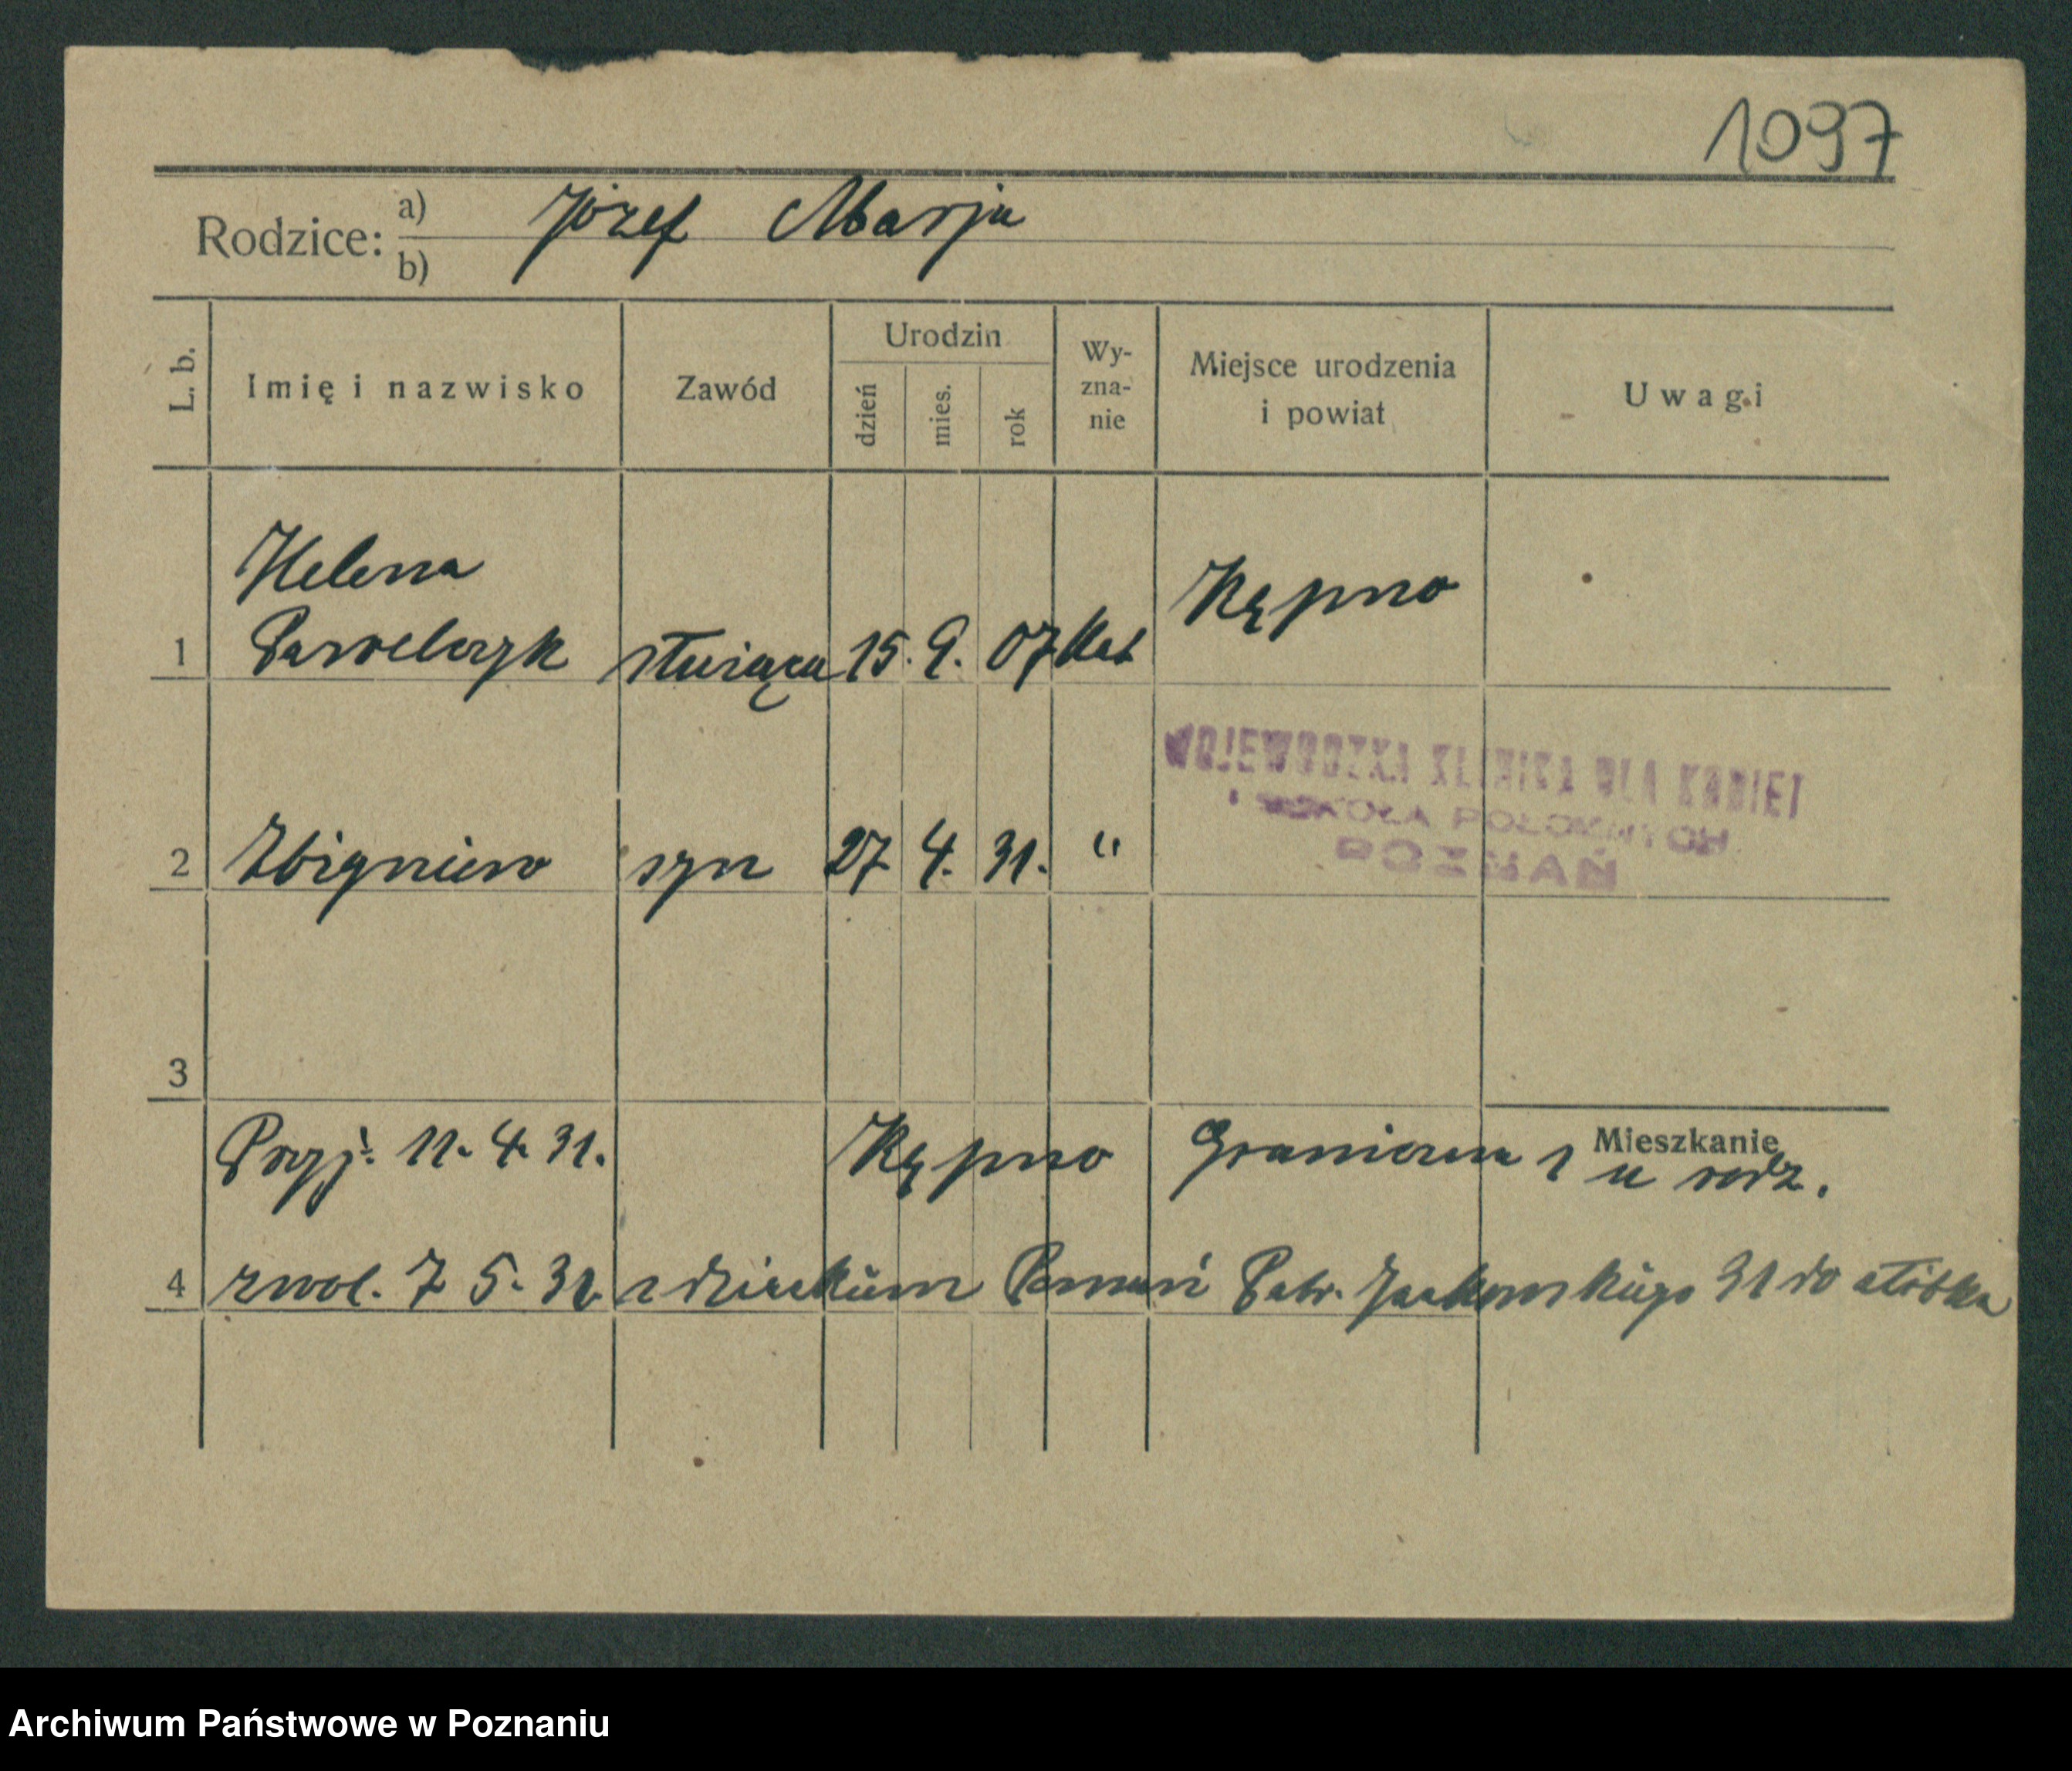 1097
Rodzice: a) b) Józef Marja
L. b. Imię i nazwisko Zawód Urodzin dzień mies. rok Wy-zna-nie Miejsce urodzenia i powiat Uwagi
Helena
1 Pawelczyk służąca 15. 9. 07 Kat Kępno
WOJEWÓDZKA KLINIKA DLA KOBIET
I SZKOŁA POŁOŻNYCH
POZNAŃ
2 Zbigniew syn 27 4. 31. "
3
Mieszkanie
Przyj. 11. 4. 31. Kępno Graniczna 1 u rodz.
4 zwol. 7 5. 31. z dzieckiem Poznań Patr. Jackowskiego 31 do żłóbka
Archiwum Państwowe w Poznaniu